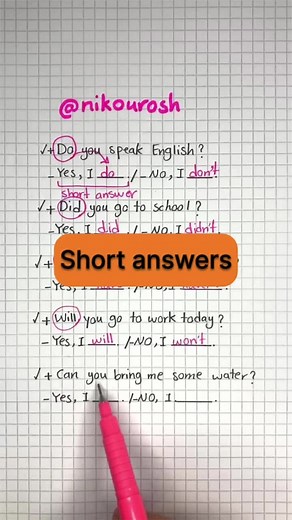 @nikourosh
√+ Do you speak English?
- Yes, I do. /- No, I don't
short answer
√+ Did you go to school?
- Yes, I did /- No, I didn't
Short answers
√+ Will you go to work today?
- Yes, I will. /-NO, I won't.
√+ Can you bring me some water?
- Yes, I ___. /-NO, I ___.